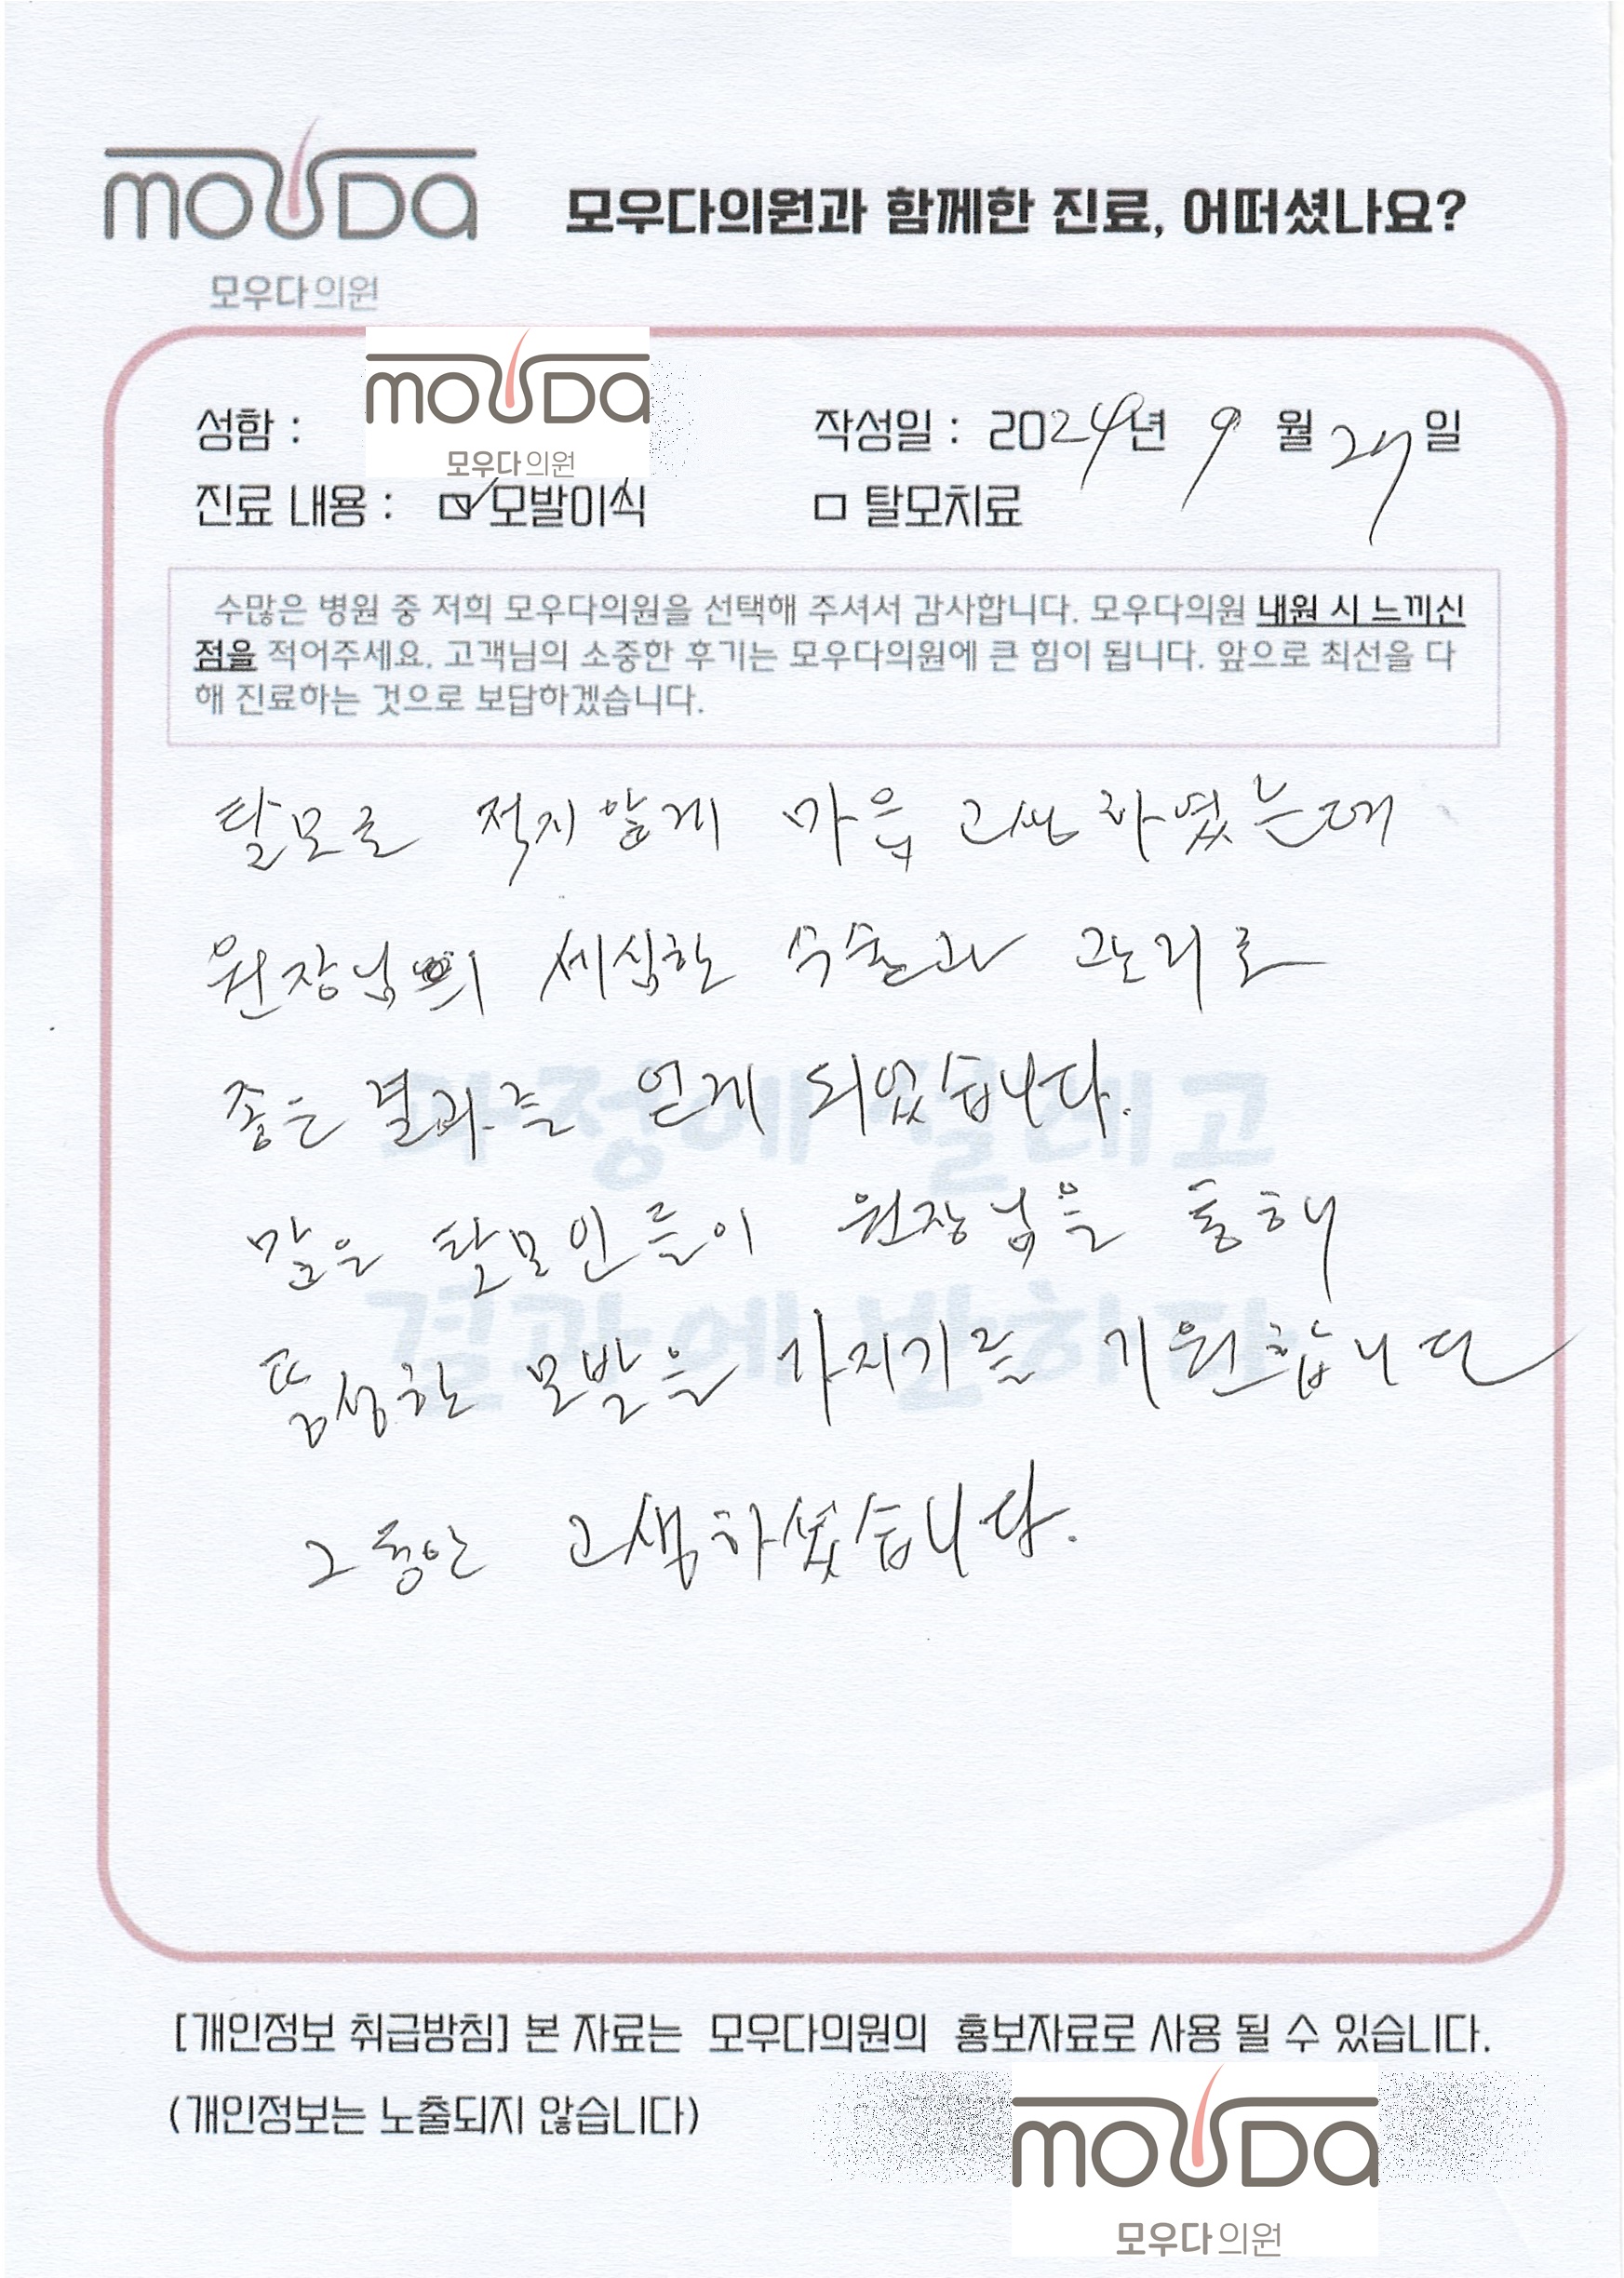 mouDa
모우다의원
모우다의원과 함께한 진료, 어떠셨나요?
mouDa
모우다의원
성함 :
작성일 : 2024년 9월 27일
진료 내용 : ☑ 모발이식 □ 탈모치료
수많은 병원 중 저희 모우다의원을 선택해 주셔서 감사합니다. 모우다의원 내원 시 느끼신
점을 적어주세요. 고객님의 소중한 후기는 모우다의원에 큰 힘이 됩니다. 앞으로 최선을 다
해 진료하는 것으로 보답하겠습니다.
탈모로 적지않게 마음 고생 하였는데
원장님의 세심한 수술과 관리로
좋은 결과를 얻게 되었습니다.
많은 탈모인들이 원장님을 통해
풍성한 모발을 가지기를 기원합니다
그동안 고생하셨습니다.
과정에 설레고
결과에 반하다
[개인정보 취급방침] 본 자료는 모우다의원의 홍보자료로 사용 될 수 있습니다.
(개인정보는 노출되지 않습니다)
mouDa
모우다의원